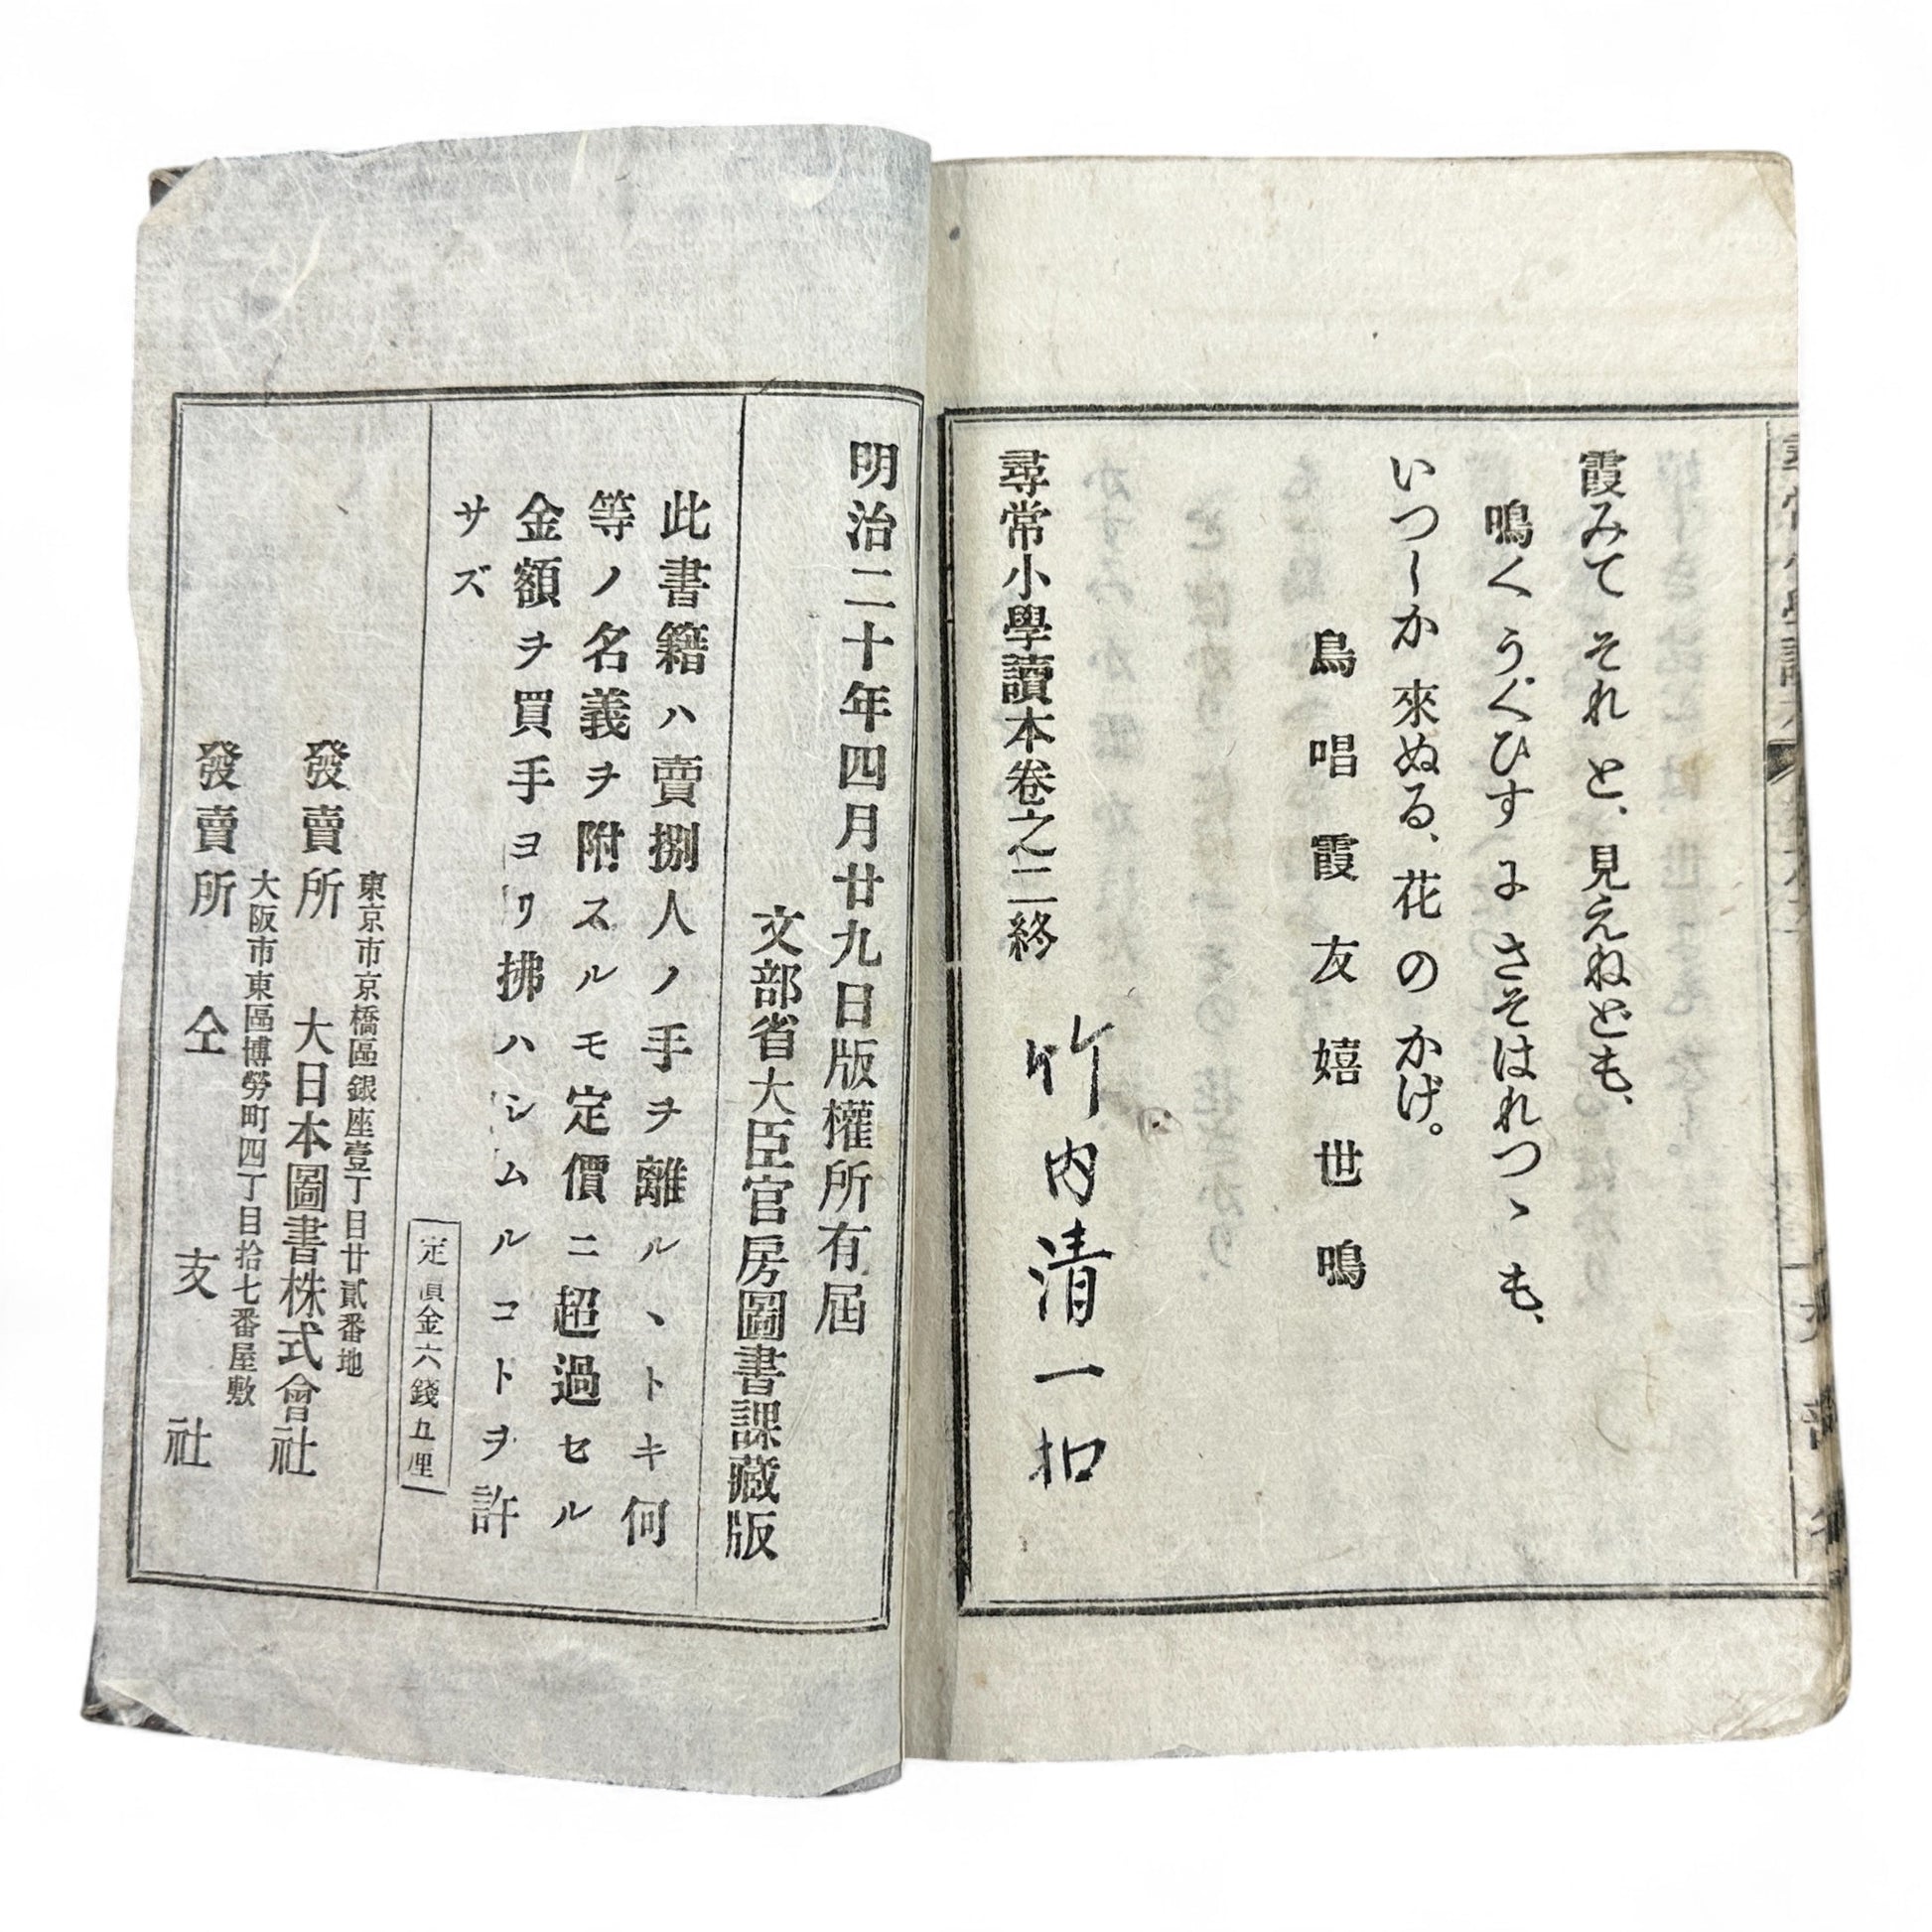 霞みて それ と、見えねども、
鳴く うぐひす よ さそはれつゝも、
いつしか 來ぬる、花 の かげ。
鳥 唱 霞 友 嬉 世 鳴
尋常小學讀本卷之二終
竹内清一扣
明治二十年四月廿九日版權所有屆
文部省大臣官房圖書課藏版
此書籍ハ賣捌人ノ手ヲ離ルヽトキ何
等ノ名義ヲ附スルモ定價ニ超過セル
金額ヲ買手ヨリ拂ハシムルコトヲ許
サズ
定價金六錢五厘
東京市京橋區銀座壹丁目廿貳番地
發賣所 大日本圖書株式會社
大阪市東區博勞町四丁目拾七番屋敷
發賣所 仝 支 社